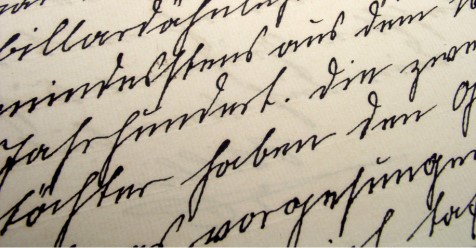 billardähnli
mindesttens aus dem
Jahrhundert. die zwe
töchter haben den g
vorgesungen